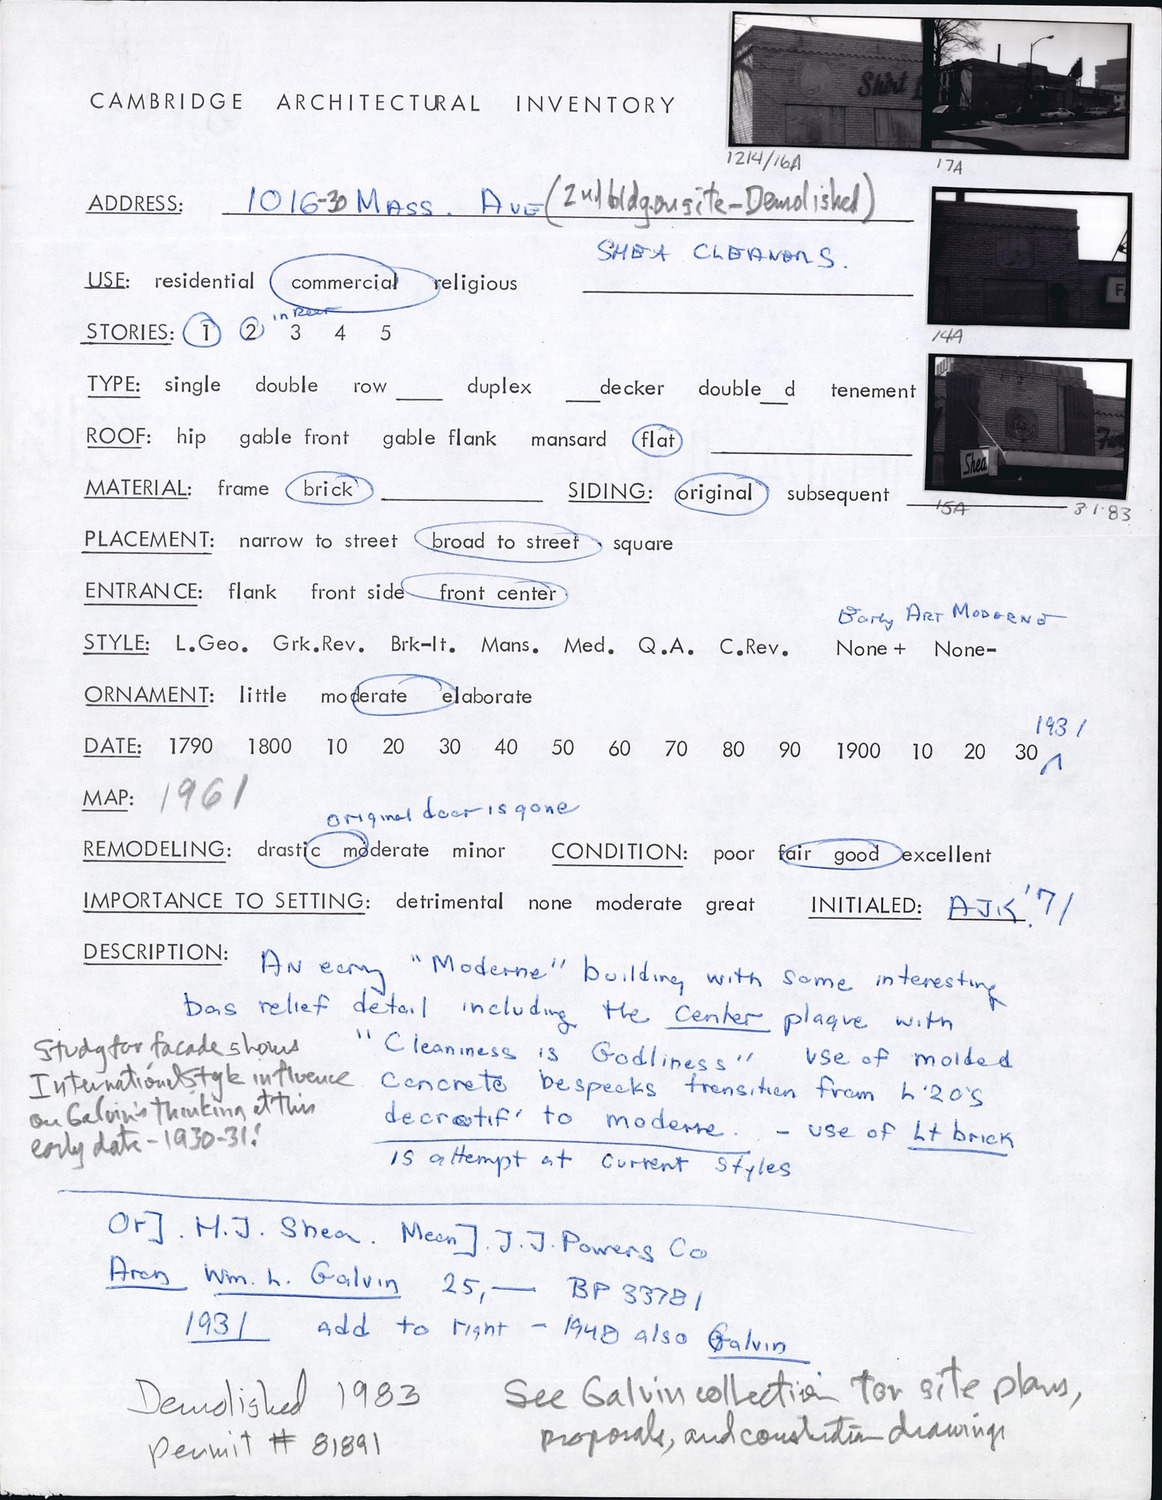 CAMBRIDGE ARCHITECTURAL INVENTORY
Shirt
1214/16A 17A
ADDRESS: 1016-30 MASS. AVE (2nd bldg on site - Demolished)
SHEA CLEANERS.
USE: residential commercial religious
in Rear
STORIES: 1 2 3 4 5
14A
TYPE: single double row ___ duplex ___decker double__d tenement
ROOF: hip gable front gable flank mansard flat
Shea
MATERIAL: frame brick SIDING: original subsequent
15A 3·1·83
PLACEMENT: narrow to street broad to street square
ENTRANCE: flank front side front center
Early ART MODERNE
STYLE: L.Geo. Grk.Rev. Brk-It. Mans. Med. Q.A. C.Rev. None + None-
ORNAMENT: little moderate elaborate
1931
DATE: 1790 1800 10 20 30 40 50 60 70 80 90 1900 10 20 30
MAP: 1961
original door is gone
REMODELING: drastic moderate minor CONDITION: poor fair good excellent
IMPORTANCE TO SETTING: detrimental none moderate great INITIALED: AJK '71
DESCRIPTION: An early "Moderne" building with some interesting
bas relief detail including the center plaque with
"Cleanness is Godliness" use of molded
concrete bespecks transition from L'20's
decratif' to moderne. - use of Lt brick
is attempt at current styles
Study for facade shows
International Style influence
on Galvin's thinking at this
early date - 1930-31!
Or]. H.J. Shea. Mean]. J.J. Powers Co
Arch Wm. L. Galvin 25,— BP 33781
1931 add to right - 1948 also Galvin
Demolished 1983
permit # 81891
See Galvin collection for site plans,
proposals, and construction drawings